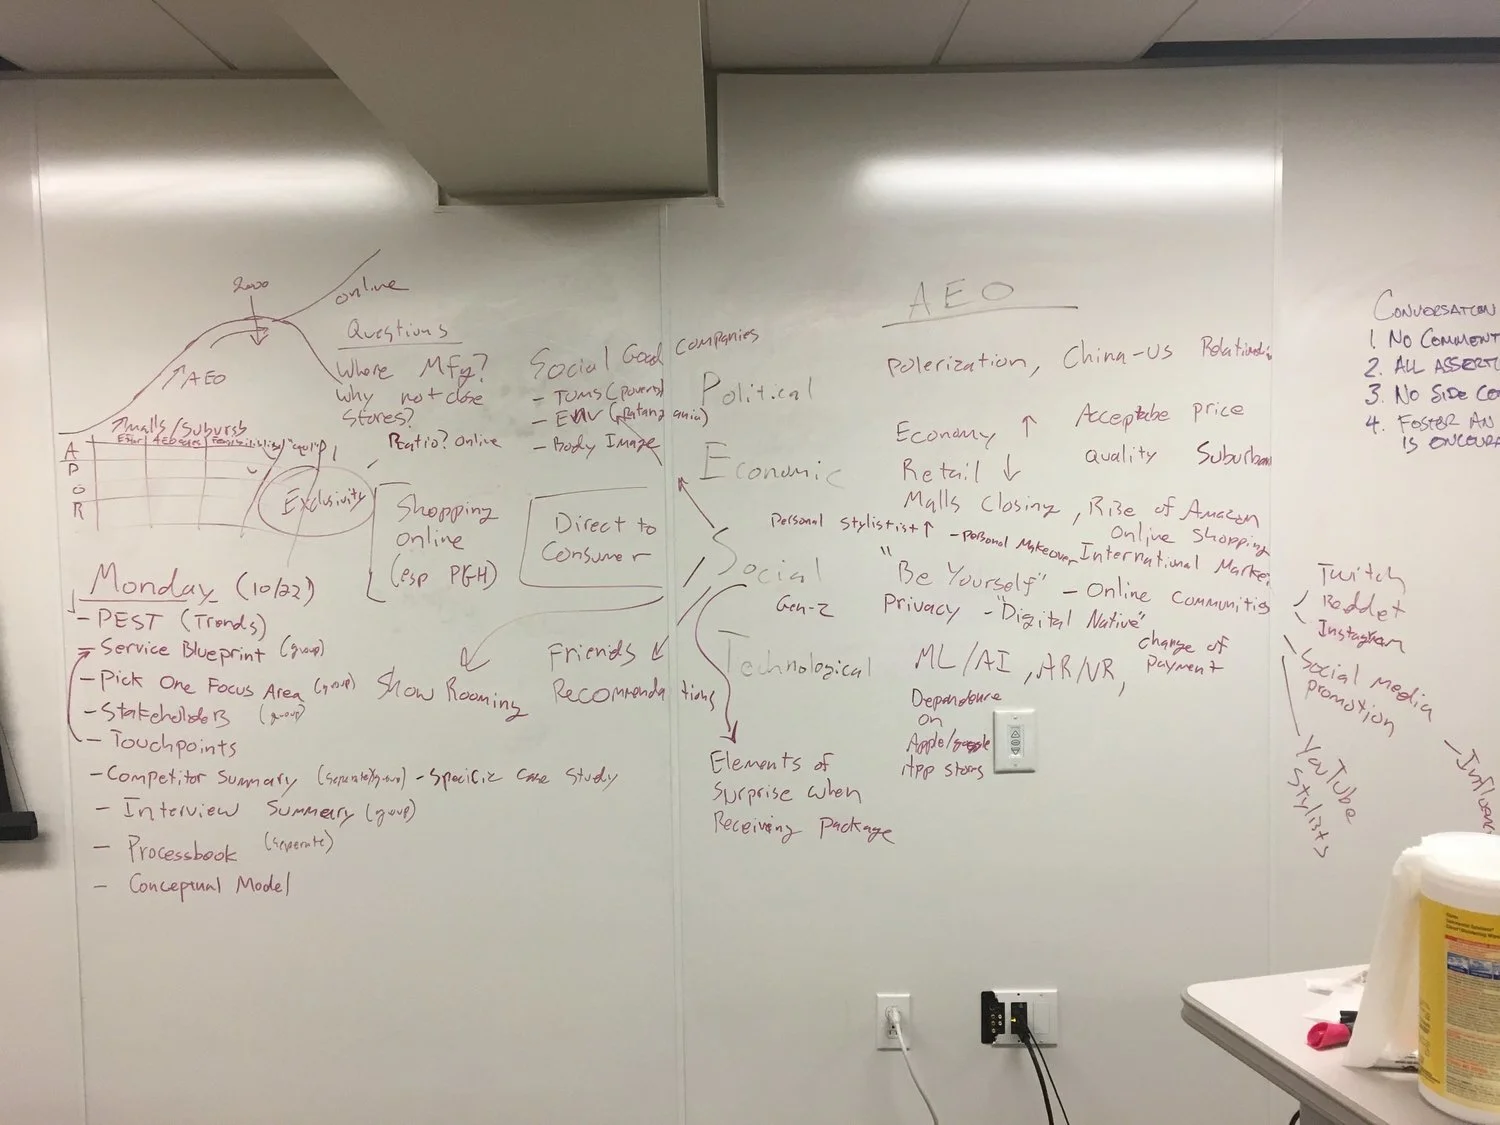 2000
online
↗ AEO
Questions
Where Mfg?
Why not close
stores?
Ratio? online
↗Malls/Suburbs
A
P
O
R
Exclusivity
Shopping
online
(esp PGH)
Social Good companies
- TOMS (poverty)
- Body Image
Direct to
Consumer
Monday (10/22)
- PEST (Trends)
- Service Blueprint (group)
- Pick One Focus Area (group)
- Stakeholders (group)
- Touchpoints
- Competitor Summary (seperate/group) - Specific case study
- Interview Summary (group)
- Processbook (seperate)
- Conceptual Model
Show Rooming
Friends
Recommendations
Political
Economic
Social
Gen-Z
Technological
Elements of
Surprise when
Receiving package
AEO
Polerization, China-US
Economy ↑ Acceptable price
Retail ↓ quality Suburban
Malls Closing, Rise of Amazon
Online Shopping
Personal Stylistist ↑ - personal Makeover International Market
"Be Yourself" - Online Communities
Privacy - "Digital Native"
ML/AI, AR/VR, change of
payment
Dependence
on
Apple/google
App stores
Twitch
Reddet
Instagram
Social Media
promotion
YouTube
Stylists
- Influen
Conversation
1. No Comment
2. All Asserti
3. No Side Co
4. Foster An
is encoura